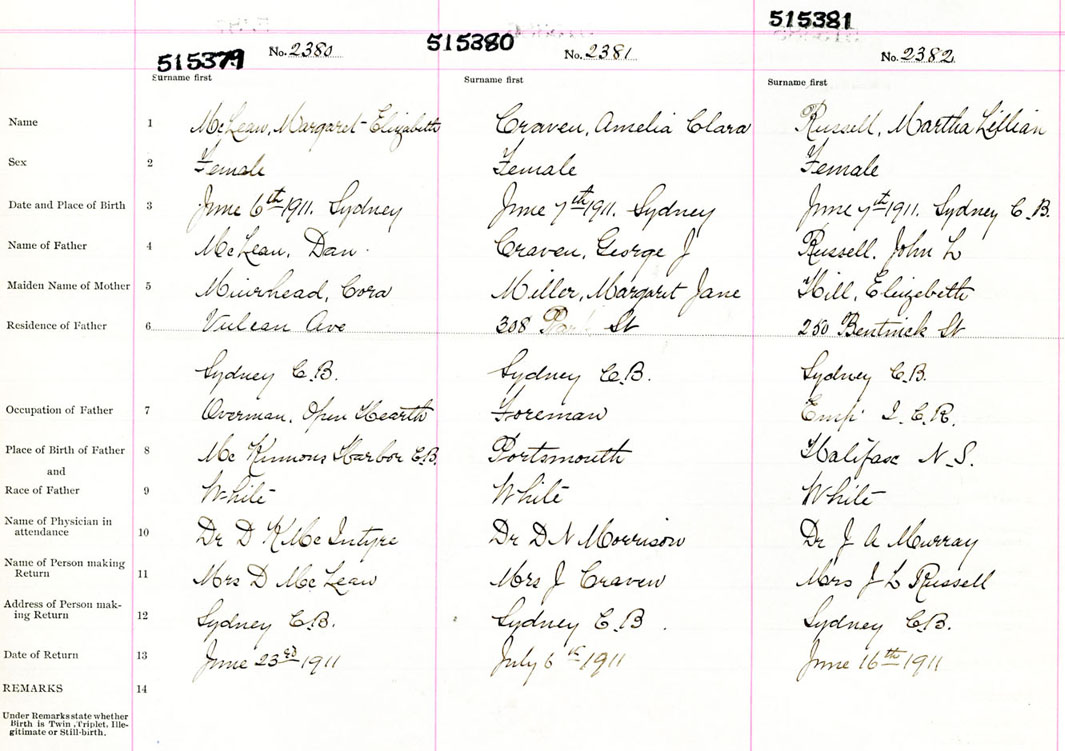 515379 No. 2380 515380 No. 2381 515381 No. 2382
Surname first Surname first Surname first
Name 1 McLean, Margaret Elizabeth Craven, Amelia Clara Russell, Martha Lillian
Sex 2 Female Female Female
Date and Place of Birth 3 June 6th 1911. Sydney June 7th 1911. Sydney June 7th 1911. Sydney C.B.
Name of Father 4 McLean, Dan Craven, George J Russell, John L
Maiden Name of Mother 5 Muirhead, Cora Miller, Margaret Jane Hill, Elizebeth
Residence of Father 6 Vulcan Ave 308 St 250 Bentinck St
Sydney C.B. Sydney C.B. Sydney C.B.
Occupation of Father 7 Overman, Open Hearth Foreman I.C.R.
Place of Birth of Father 8 Mc Kinnons Harbor C.B. Portsmouth Halifax N.S.
and
Race of Father 9 White White White
Name of Physician in
attendance 10 Dr D K McIntyre Dr D N Morrison Dr J A Murray
Name of Person making
Return 11 Mrs D McLean Mrs J Craven Mrs J L Russell
Address of Person mak-
ing Return 12 Sydney C.B. Sydney C.B. Sydney C.B.
Date of Return 13 June 23rd 1911 July 6 1911 June 16th 1911
REMARKS 14
Under Remarks state whether
Birth is Twin, Triplet, Ille-
gitimate or Still-birth.